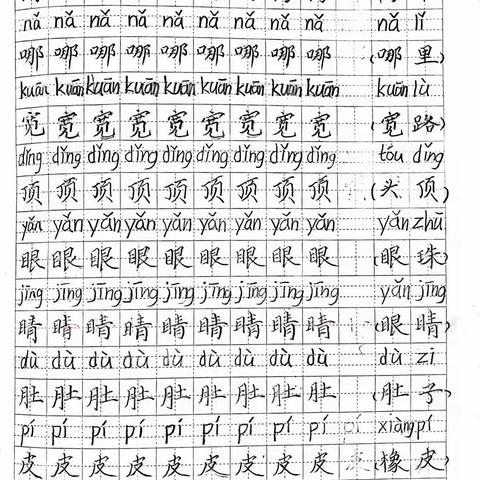 nǎ nǎ nǎ nǎ nǎ nǎ nǎ nǎ nǎ lǐ
哪 哪 哪 哪 哪 哪 哪 哪 (哪 里)
kuān kuān kuān kuān kuān kuān kuān kuān kuān lù
宽 宽 宽 宽 宽 宽 宽 宽 (宽 路)
dǐng dǐng dǐng dǐng dǐng dǐng dǐng dǐng tóu dǐng
顶 顶 顶 顶 顶 顶 顶 顶 (头 顶)
yǎn yǎn yǎn yǎn yǎn yǎn yǎn yǎn yǎn zhū
眼 眼 眼 眼 眼 眼 眼 眼 (眼 珠)
jīng jīng jīng jīng jīng jīng jīng jīng yǎn jīng
睛 睛 睛 睛 睛 睛 睛 睛 (眼 睛)
dù dù dù dù dù dù dù dù dù zi
肚 肚 肚 肚 肚 肚 肚 肚 (肚 子)
pí pí pí pí pí pí pí pí pí xiàng pí
皮 皮 皮 皮 皮 皮 皮 皮 (橡 皮)